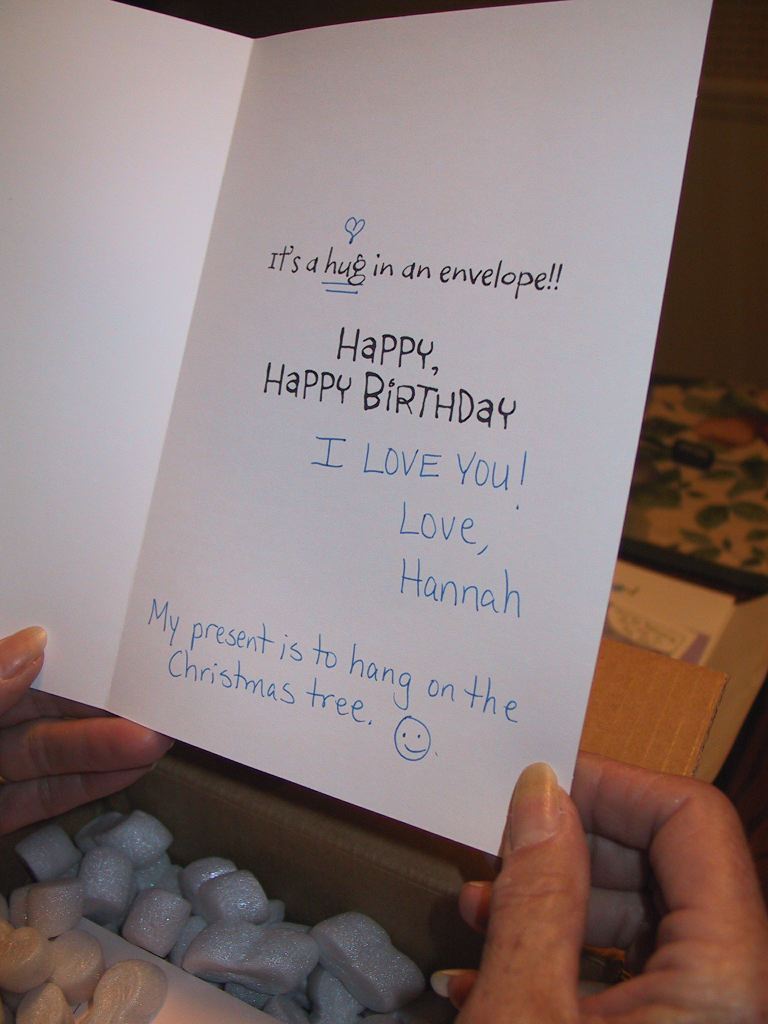 It's a hug in an envelope!!
HaPPY,
HaPPY BiRTHDaY
I LOVE YOU!
Love,
Hannah
My present is to hang on the
Christmas tree.